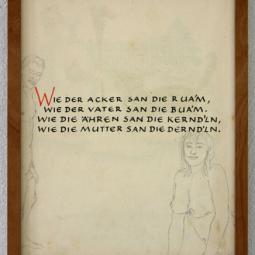 WIE DER ACKER SAN DIE RUAM,
WIE DER VATER SAN DIE BUAM.
WIE DIE ÄHREN SAN DIE KERND'LN,
WIE DIE MUTTER SAN DIE DERND'LN.